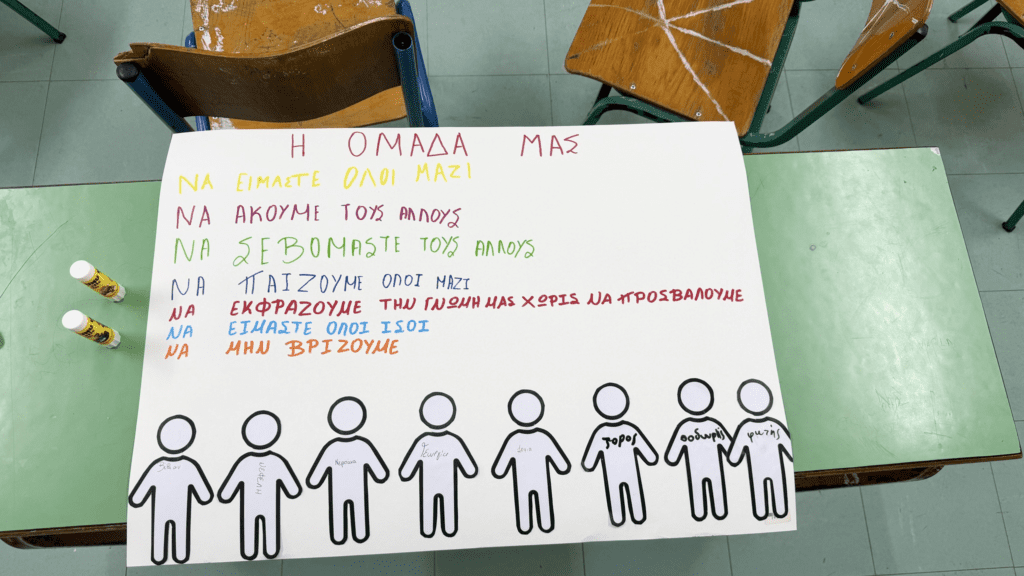 Η ΟΜΑΔΑ ΜΑΣ
ΝΑ ΕΙΜΑΣΤΕ ΟΛΟΙ ΜΑΖΙ
ΝΑ ΑΚΟΥΜΕ ΤΟΥΣ ΑΛΛΟΥΣ
ΝΑ ΣΕΒΟΜΑΣΤΕ ΤΟΥΣ ΑΛΛΟΥΣ
ΝΑ ΠΑΙΖΟΥΜΕ ΟΛΟΙ ΜΑΖΙ
ΝΑ ΕΚΦΡΑΖΟΥΜΕ ΤΗΝ ΓΝΩΜΗ ΜΑΣ ΧΩΡΙΣ ΝΑ ΠΡΟΣΒΑΛΟΥΜΕ
ΝΑ ΕΙΜΑΣΤΕ ΟΛΟΙ ΙΣΟΙ
ΝΑ ΜΗΝ ΒΡΙΖΟΥΜΕ
ΝΕΦΕΛΗ